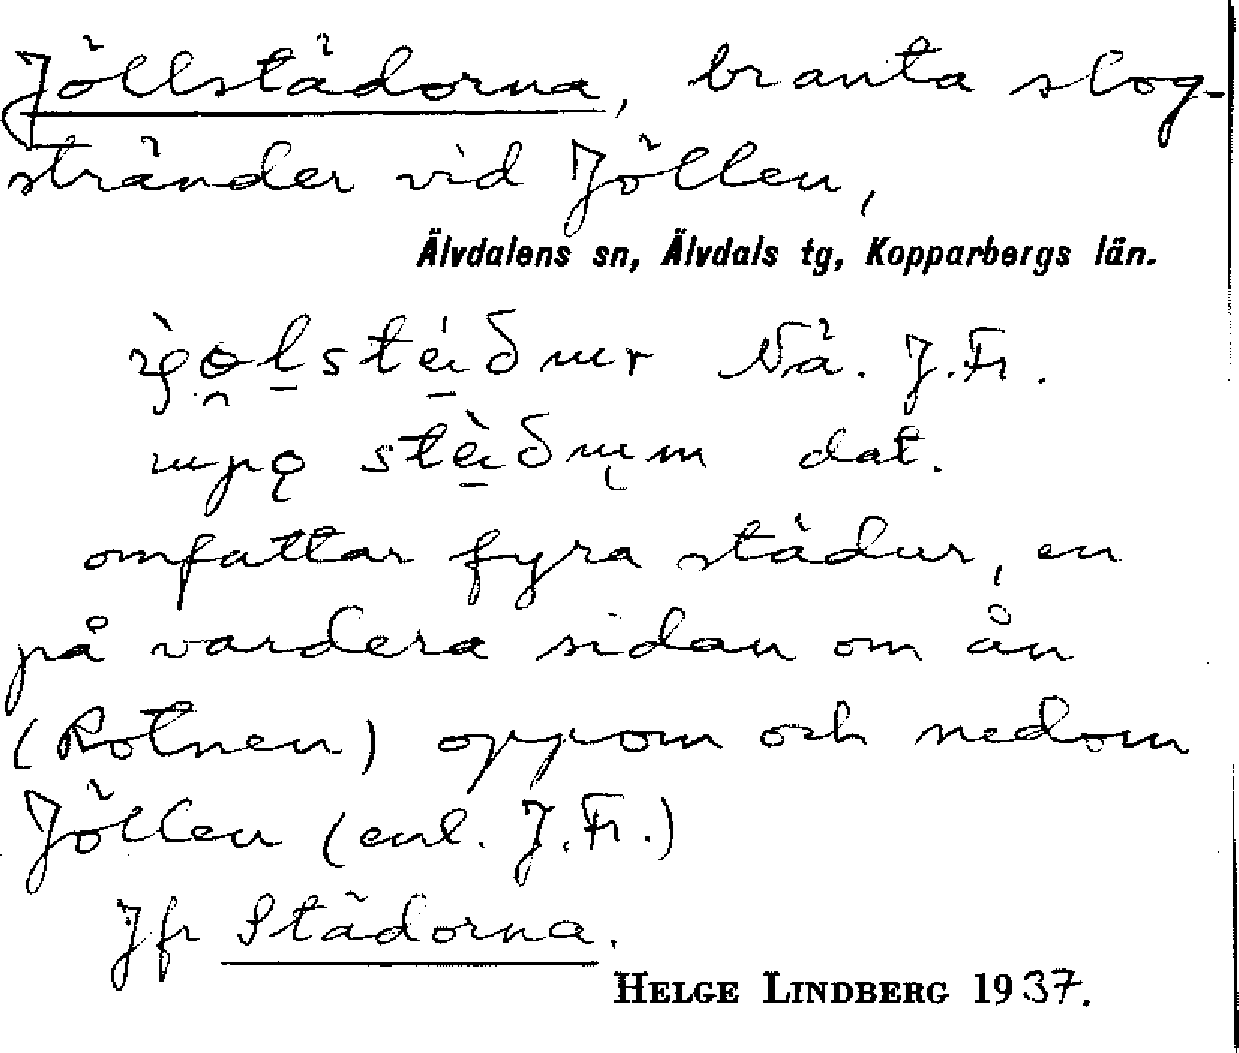 Jöllstädorna, branta slog-
stränder vid Jöllen,
Älvdalens sn, Älvdals tg, Kopparbergs län.
Nä. J. Fr.
dat.
omfattar fyra städur, en
på vardera sidan om ån
(Rotnen) oppom och nedom
Jöllen (enl. J. Fr.)
Jfr Städorna.
HELGE LINDBERG 1937.